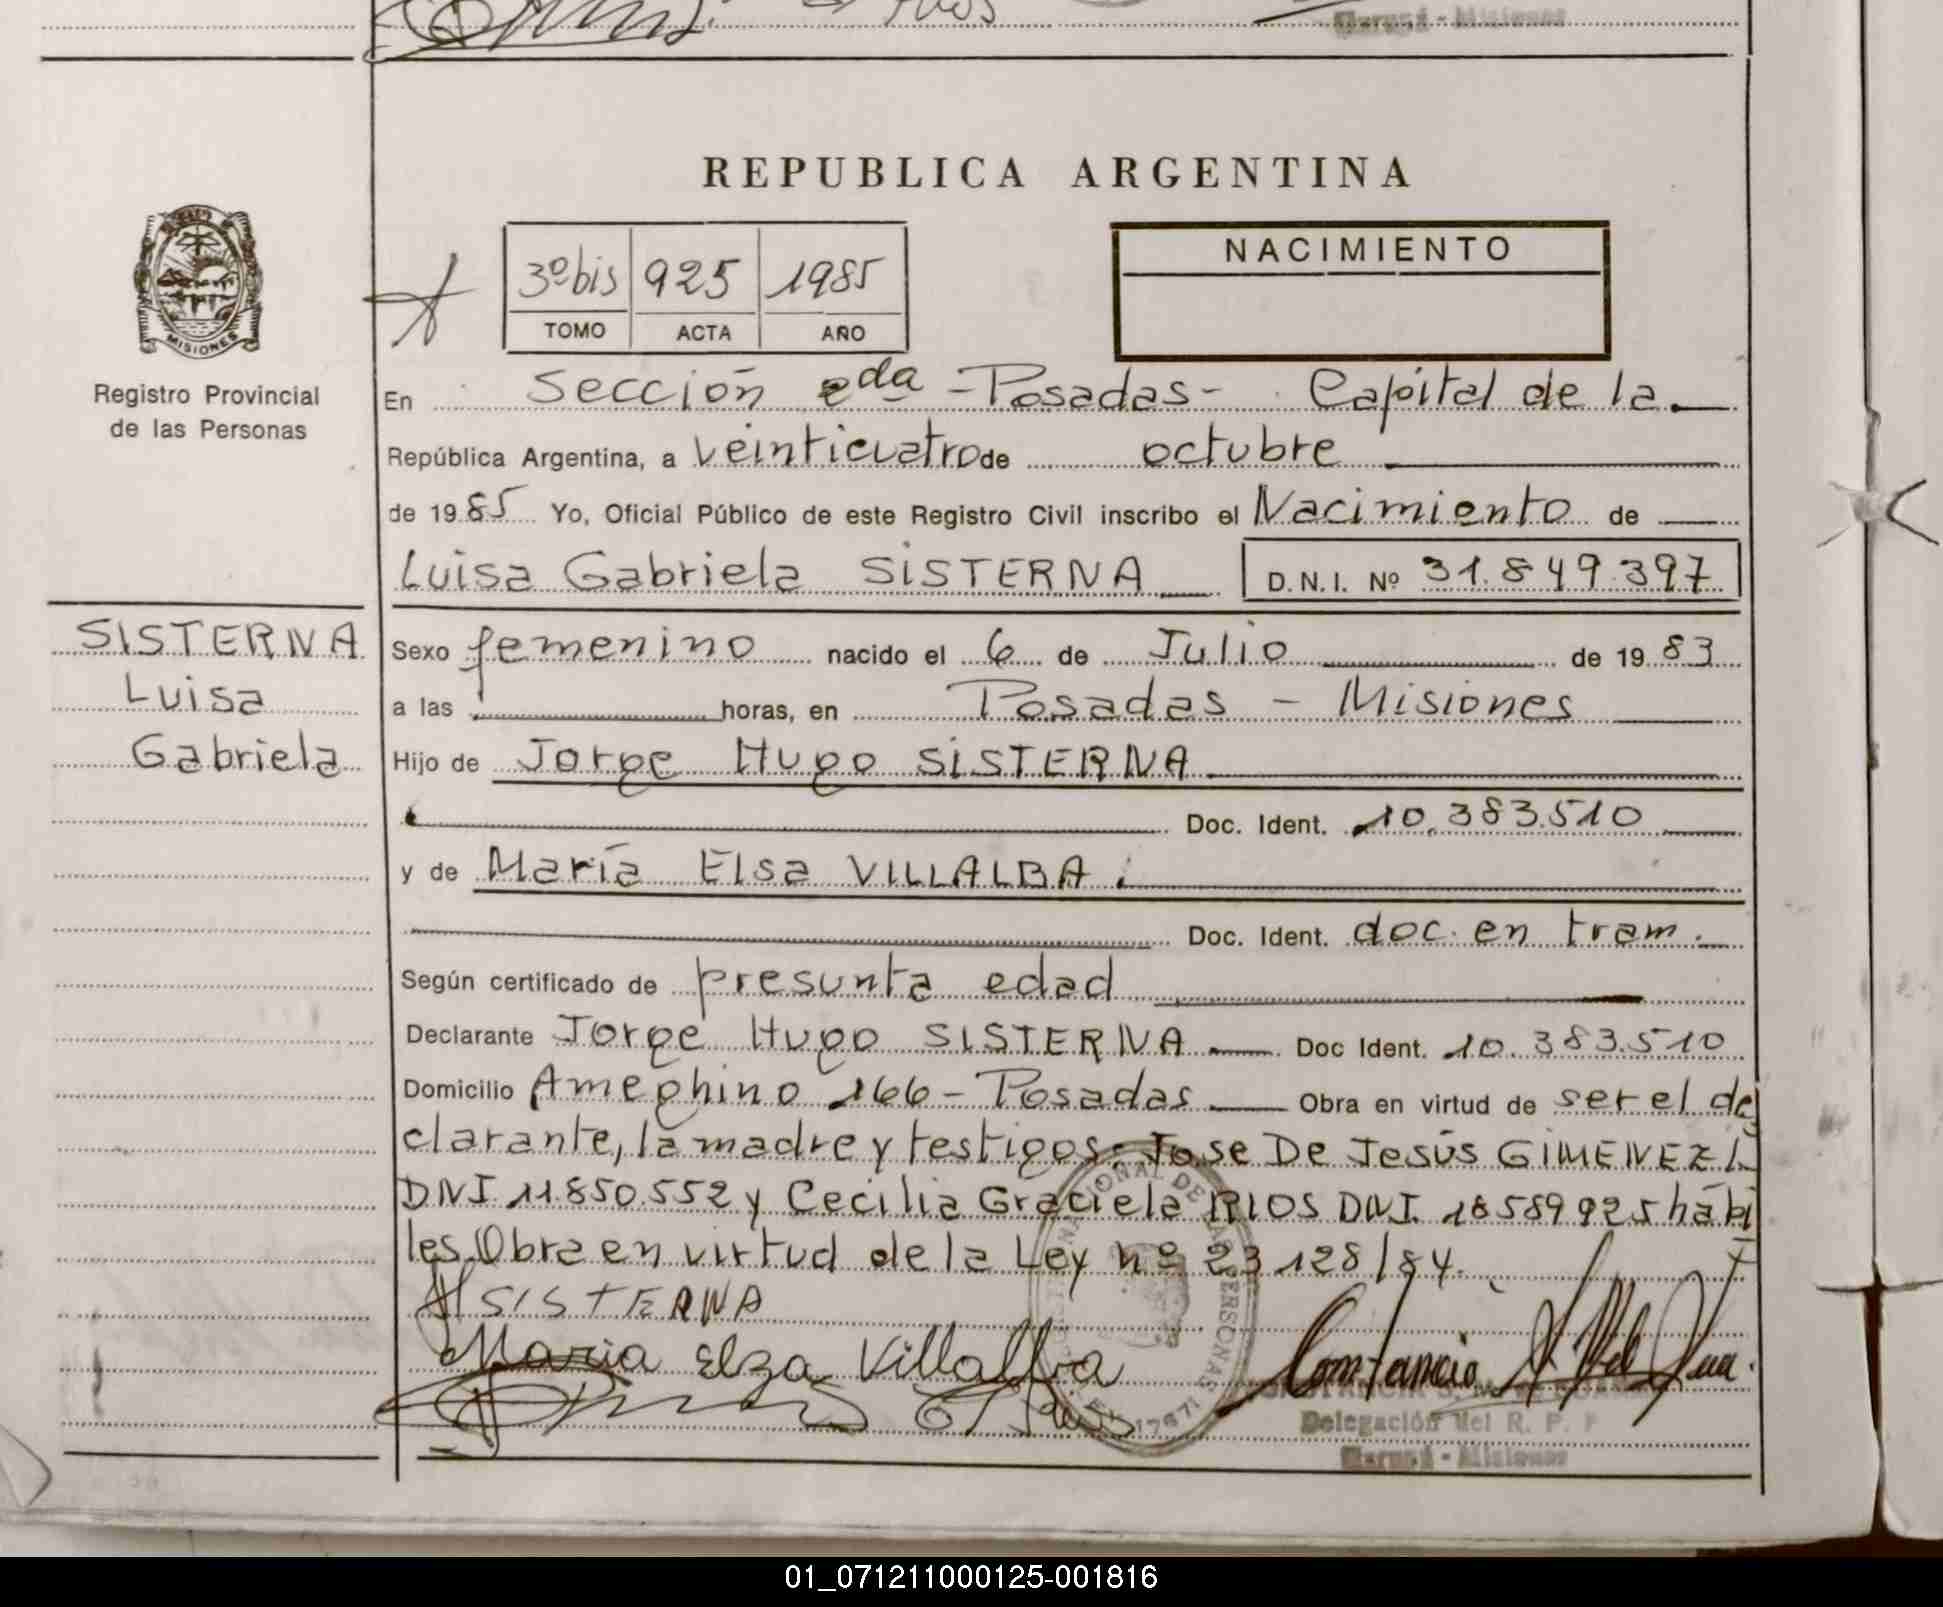 Misiones
REPUBLICA ARGENTINA
3º bis 925 1985
TOMO ACTA AÑO
NACIMIENTO
MISIONES
Registro Provincial
de las Personas
En Sección 2da - Posadas - Capital de la
República Argentina, a veinticuatro de octubre
de 1985 Yo, Oficial Público de este Registro Civil inscribo el Nacimiento de
Luisa Gabriela SISTERNA D.N.I. Nº 31.849.397
SISTERNA
Luisa
Gabriela
Sexo femenino nacido el 6 de Julio de 1983
a las horas, en Posadas - Misiones
Hijo de Jorge Hugo SISTERNA
Doc. Ident. 10.383.510
y de María Elsa VILLALBA.
Doc. Ident. doc. en tram.
Según certificado de presunta edad
Declarante Jorge Hugo SISTERNA Doc Ident. 10.383.510
Domicilio Ameghino 166 - Posadas Obra en virtud de ser el de
clarante, la madre y testigos: Jose De Jesús GIMENEZ L.
DNI 11.850.552 y Cecilia Graciela RIOS DNI. 18589925 hábi
les. Obra en virtud de la Ley nº 23.128/84.
SISTERNA
Maria Elza Villalba
Delegación del R. P. P
Misiones
01_071211000125-001816